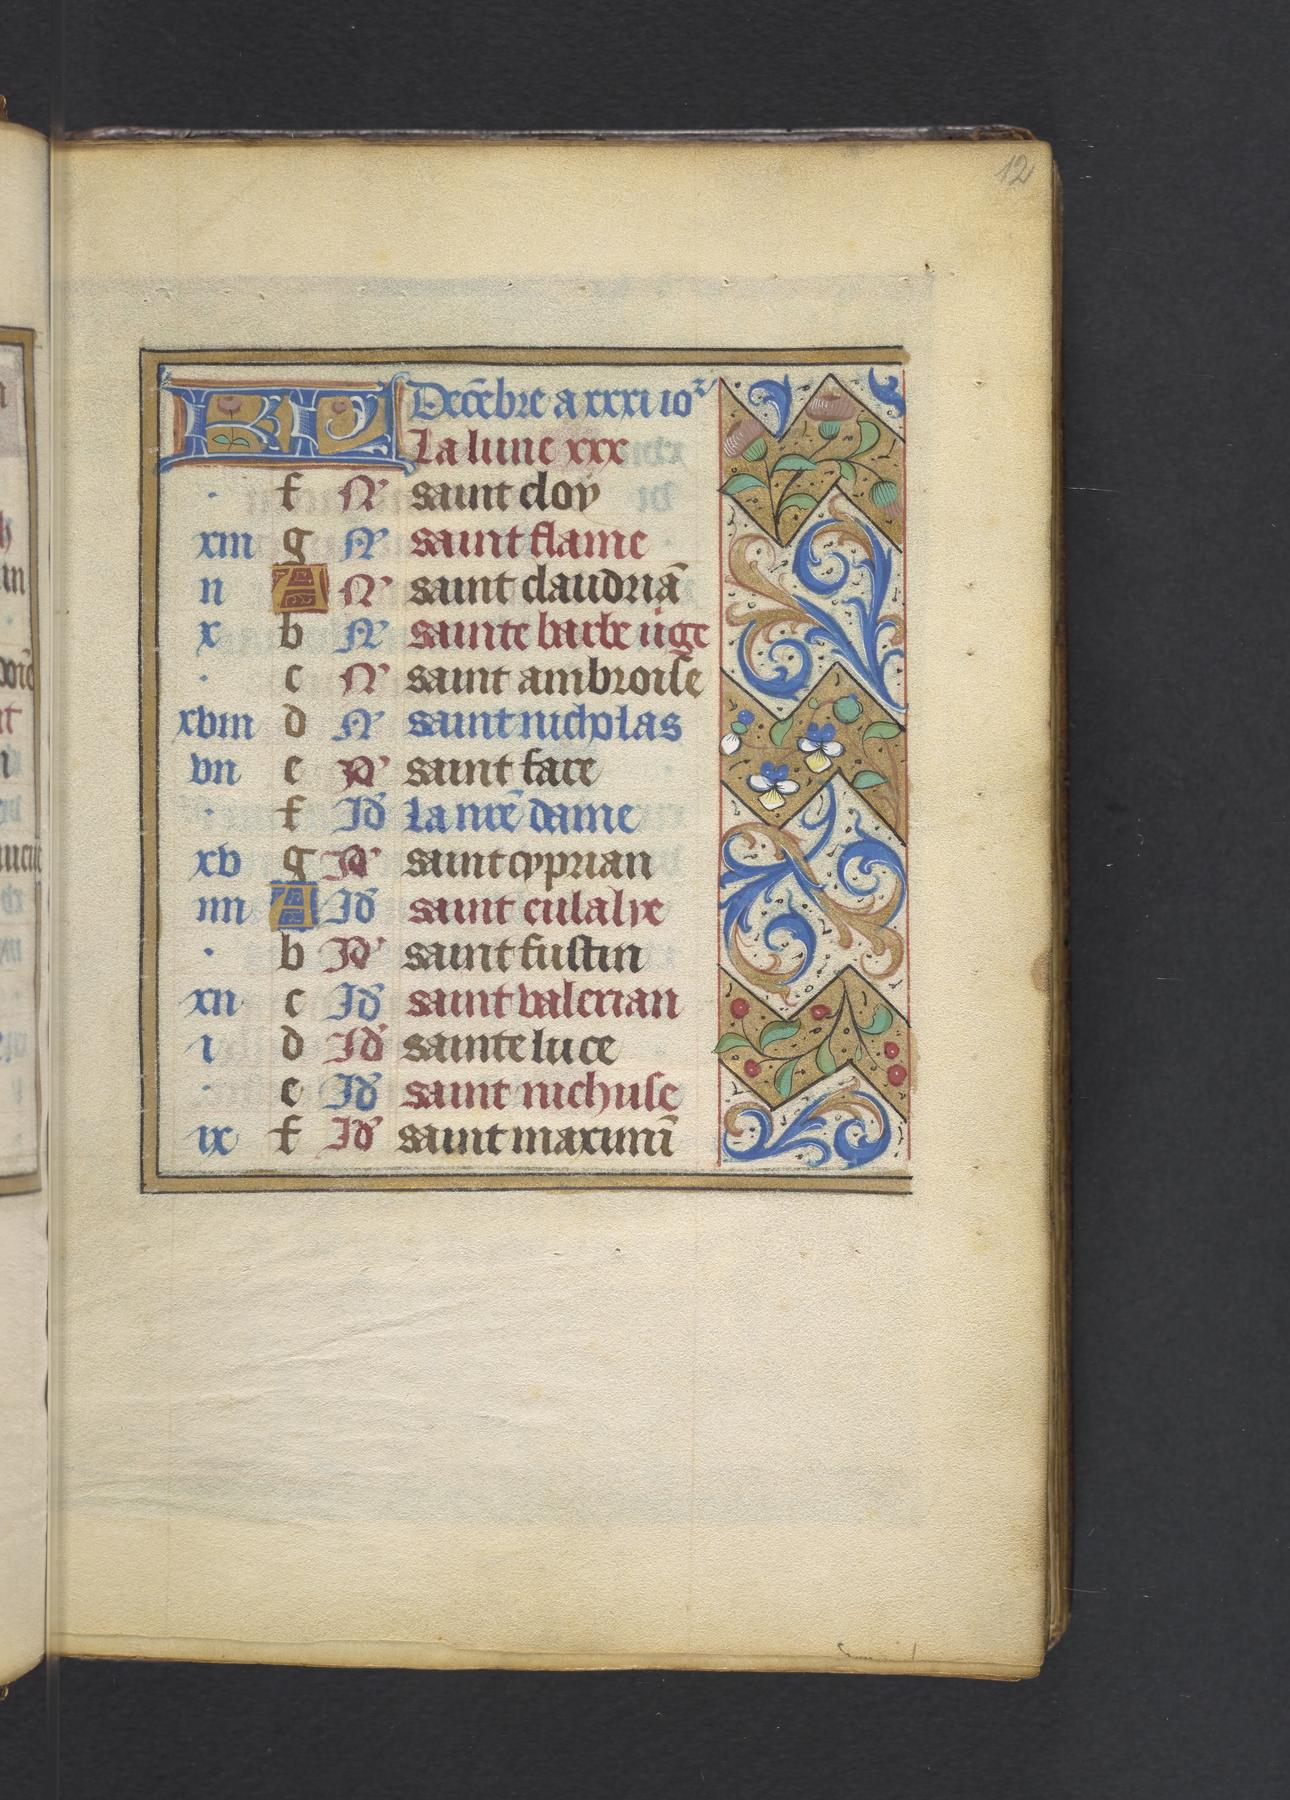 12
KL Dece̅bre a xxxi ioꝛˢ
La lune xxx
· f N saint eloy
xiii g N saint flame
ii A N saint claudria̅
x b N sainte barbe uige
· c N saint ambroise
xviii d N saint nicholas
vii e N saint face
· f Id la nr̅e dame
xv g Id saint cyprian
iiii A Id saint eulalye
· b Id saint fustin
xii c Id saint valerian
i d Id sainte luce
· e Id saint nichuse
ix f Id saint maximi̅